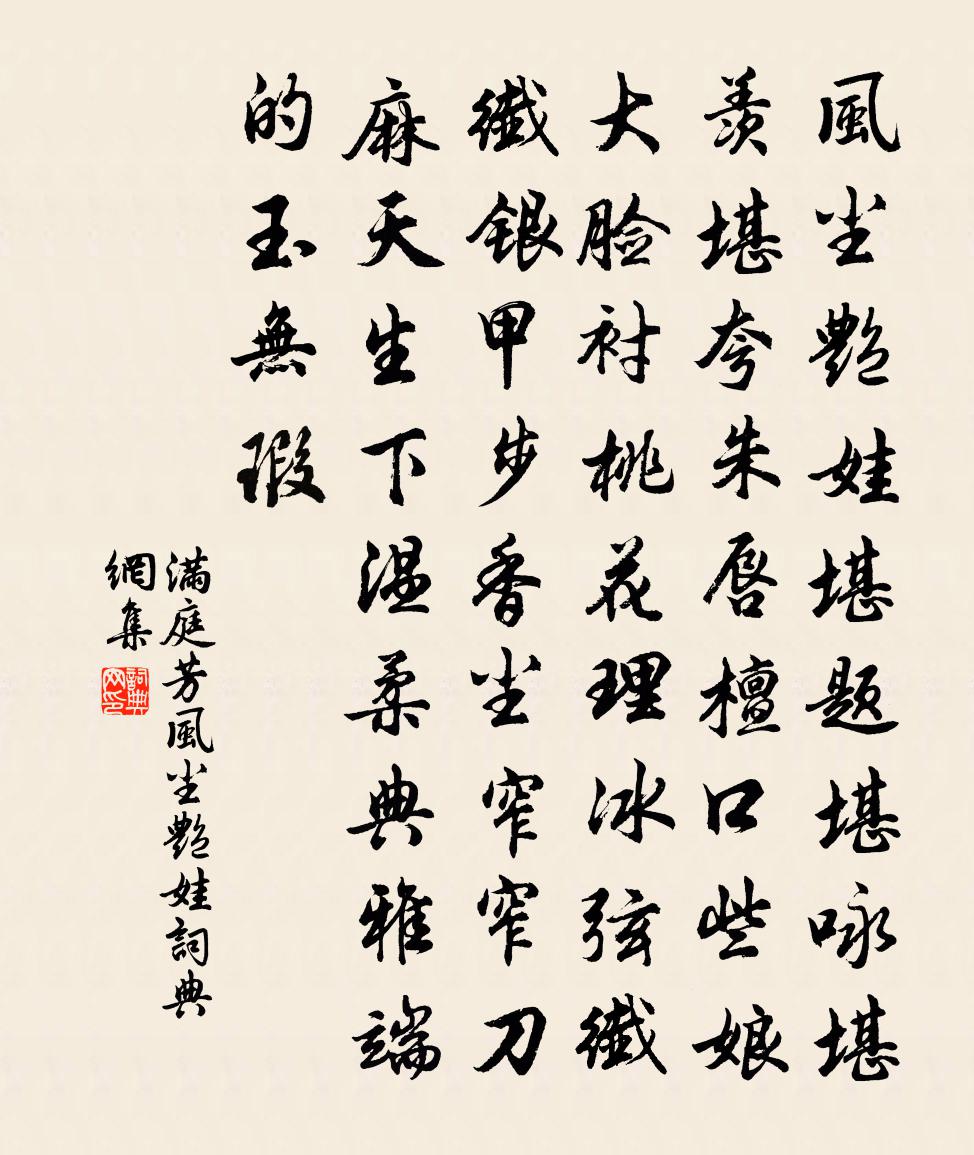 風尘艷娃堪題堪咏堪
羡堪夸朱唇檀口些娘
大脸衬桃花理冰弦纖
纖銀甲步香尘窄窄刀
麻天生下温柔典雅端
的玉無瑕
滿庭芳風尘艷娃詞典
網集
詞典
网印